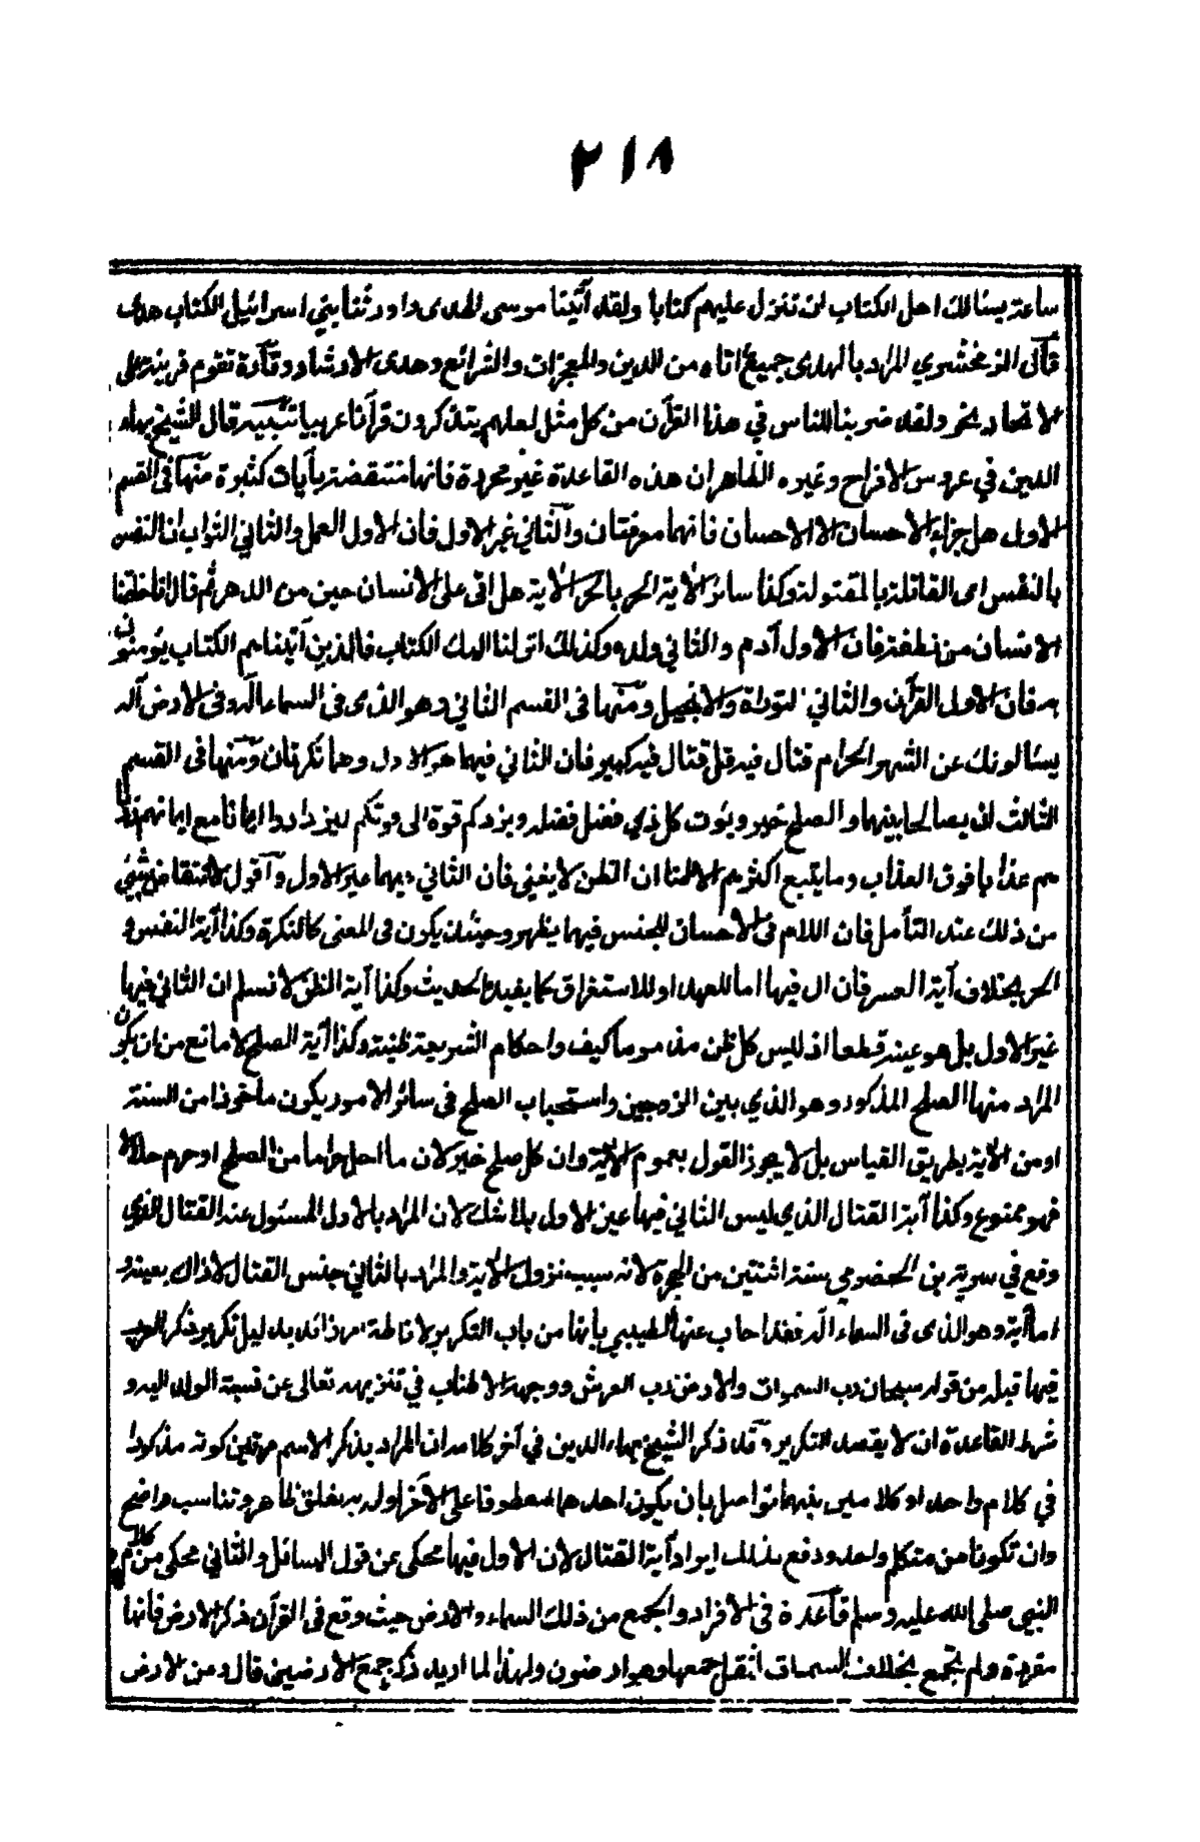 ٢١٨
ساعة يسئالك اهل الكتاب ان تنزل عليهم كتابا ولقد آتينا موسى الهدى واورثنا بني اسرائيل الكتاب هدى
قال الزمخشري المراد بالهدى جميع ما اتاه من الدين والمعجزات والشرائع وهدى الارشاد وتارة تقوم قرينة على
الاتحاد نحو ولقد ضربنا للناس في هذا القرآن من كل مثل لعلهم يتذكرون قرآنا عربيا تنبيه قال الشيخ بهاء
الدين في عروس الافراح وغيره الظاهر ان هذه القاعدة غير محررة فانها منتقضة بآيات كثيرة منها فى القسم
الاول هل جزاء الاحسان الا الاحسان فانهما معرفتان والثاني غير الاول فان الاول العمل والثاني الثواب ان النفس
بالنفس اى القاتلة بالمقتولة وكذا سائر الآية الحر بالحر الآية هل اتى على الانسان حين من الدهر ثم قال انا خلقنا
الانسان من نطفة فان الاول آدم والثاني ولده وكذلك انزلنا اليك الكتاب فالذين آتيناهم الكتاب يؤمنون
به فان الاول القرآن والثاني التوراة والانجيل ومنها فى القسم الثاني وهو الذى فى السماء اله وفى الارض آله
يسئالونك عن الشهر الحرام قتال فيه قل قتال فيه كبير فان الثاني فيهما هو الاول وهما نكرتان ومنها فى القسم
الثالث ان يصالحا بينهما والصلح خير ويؤت كل ذي فضل فضله ويزدكم قوة الى قوتكم ليزدادوا ايمانا مع ايمانهم زدنا
هم عذابا فوق العذاب وما يتبع اكثرهم الا ظنا ان الظن لا يغني فان الثاني فيهما غير الاول واقول لا انتقاض بشئ
من ذلك عند التأمل فان اللام فى الاحسان للجنس فيما يظهر وحينئذ يكون فى المعنى كالنكرة وكذا آية النفس و
الحر بخلاف آية العسر فان ال فيها اما للعهد او للاستغراق كما يفيده الحديث وكذا آية الظن لا نسلم ان الثاني فيها
غير الاول بل هو عينه قطعا اذ ليس كل ظن مذموما كيف واحكام الشريعة ظنية وكذا آية الصلح لا مانع من ان يكون
المراد منها الصلح المذكور وهو الذي بين الزوجين واستحباب الصلح فى سائر الامور يكون ماخوذا من السنة
او من الآية بطريق القياس بل لا يجوز القول بعموم الآية وان كل صلح خير لان ما احل حراما من الصلح او حرم حلالا
فهو ممنوع وكذا آية القتال الذي ليس الثاني فيها عين الاول بلا شك لان المراد بالاول المسئول عنه القتال الذي
وقع في سرية بن الحضرمي سنة اثنتين من الهجرة لانه سبب نزول الآية والمراد بالثاني جنس القتال لا ذاك بعينه و
اما آية وهو الذى فى السماء اله فقد اجاب عنها الطيبي بأنها من باب التكرير لافادة امر زائد بدليل تكرير ذكر الرب
فيها قبله من قوله سبحان رب السموات والارض رب العرش ووجهه الاطناب في تنزيهه تعالى عن نسبة الولد اليه و
شرط القاعدة ان لا يقصد التكرير وقد ذكر الشيخ بهاء الدين في آخر كلامه ان المراد بذكر الاسم مرتين كونه مذكورا
في كلام واحد او كلامين بينهما تواصل بان يكون احدهما معطوفا على الآخر اوله به تعلق ظاهر وتناسب واضح
وان تكونا من متكلم واحد ودفع بذلك ايراد آية القتال لان الاول فيها محكى عن قول السائل والثاني محكى من كلام
النبي صلى الله عليه وسلم قاعدة فى الافراد والجمع من ذلك السماء والارض حيث وقع فى القرآن ذكر الارض فانها
مفردة ولم تجمع بخلاف السموات لثقل جمعها وهو ارضون ولهذا لما اريد ذكر جمع الارضين قال ومن الارض